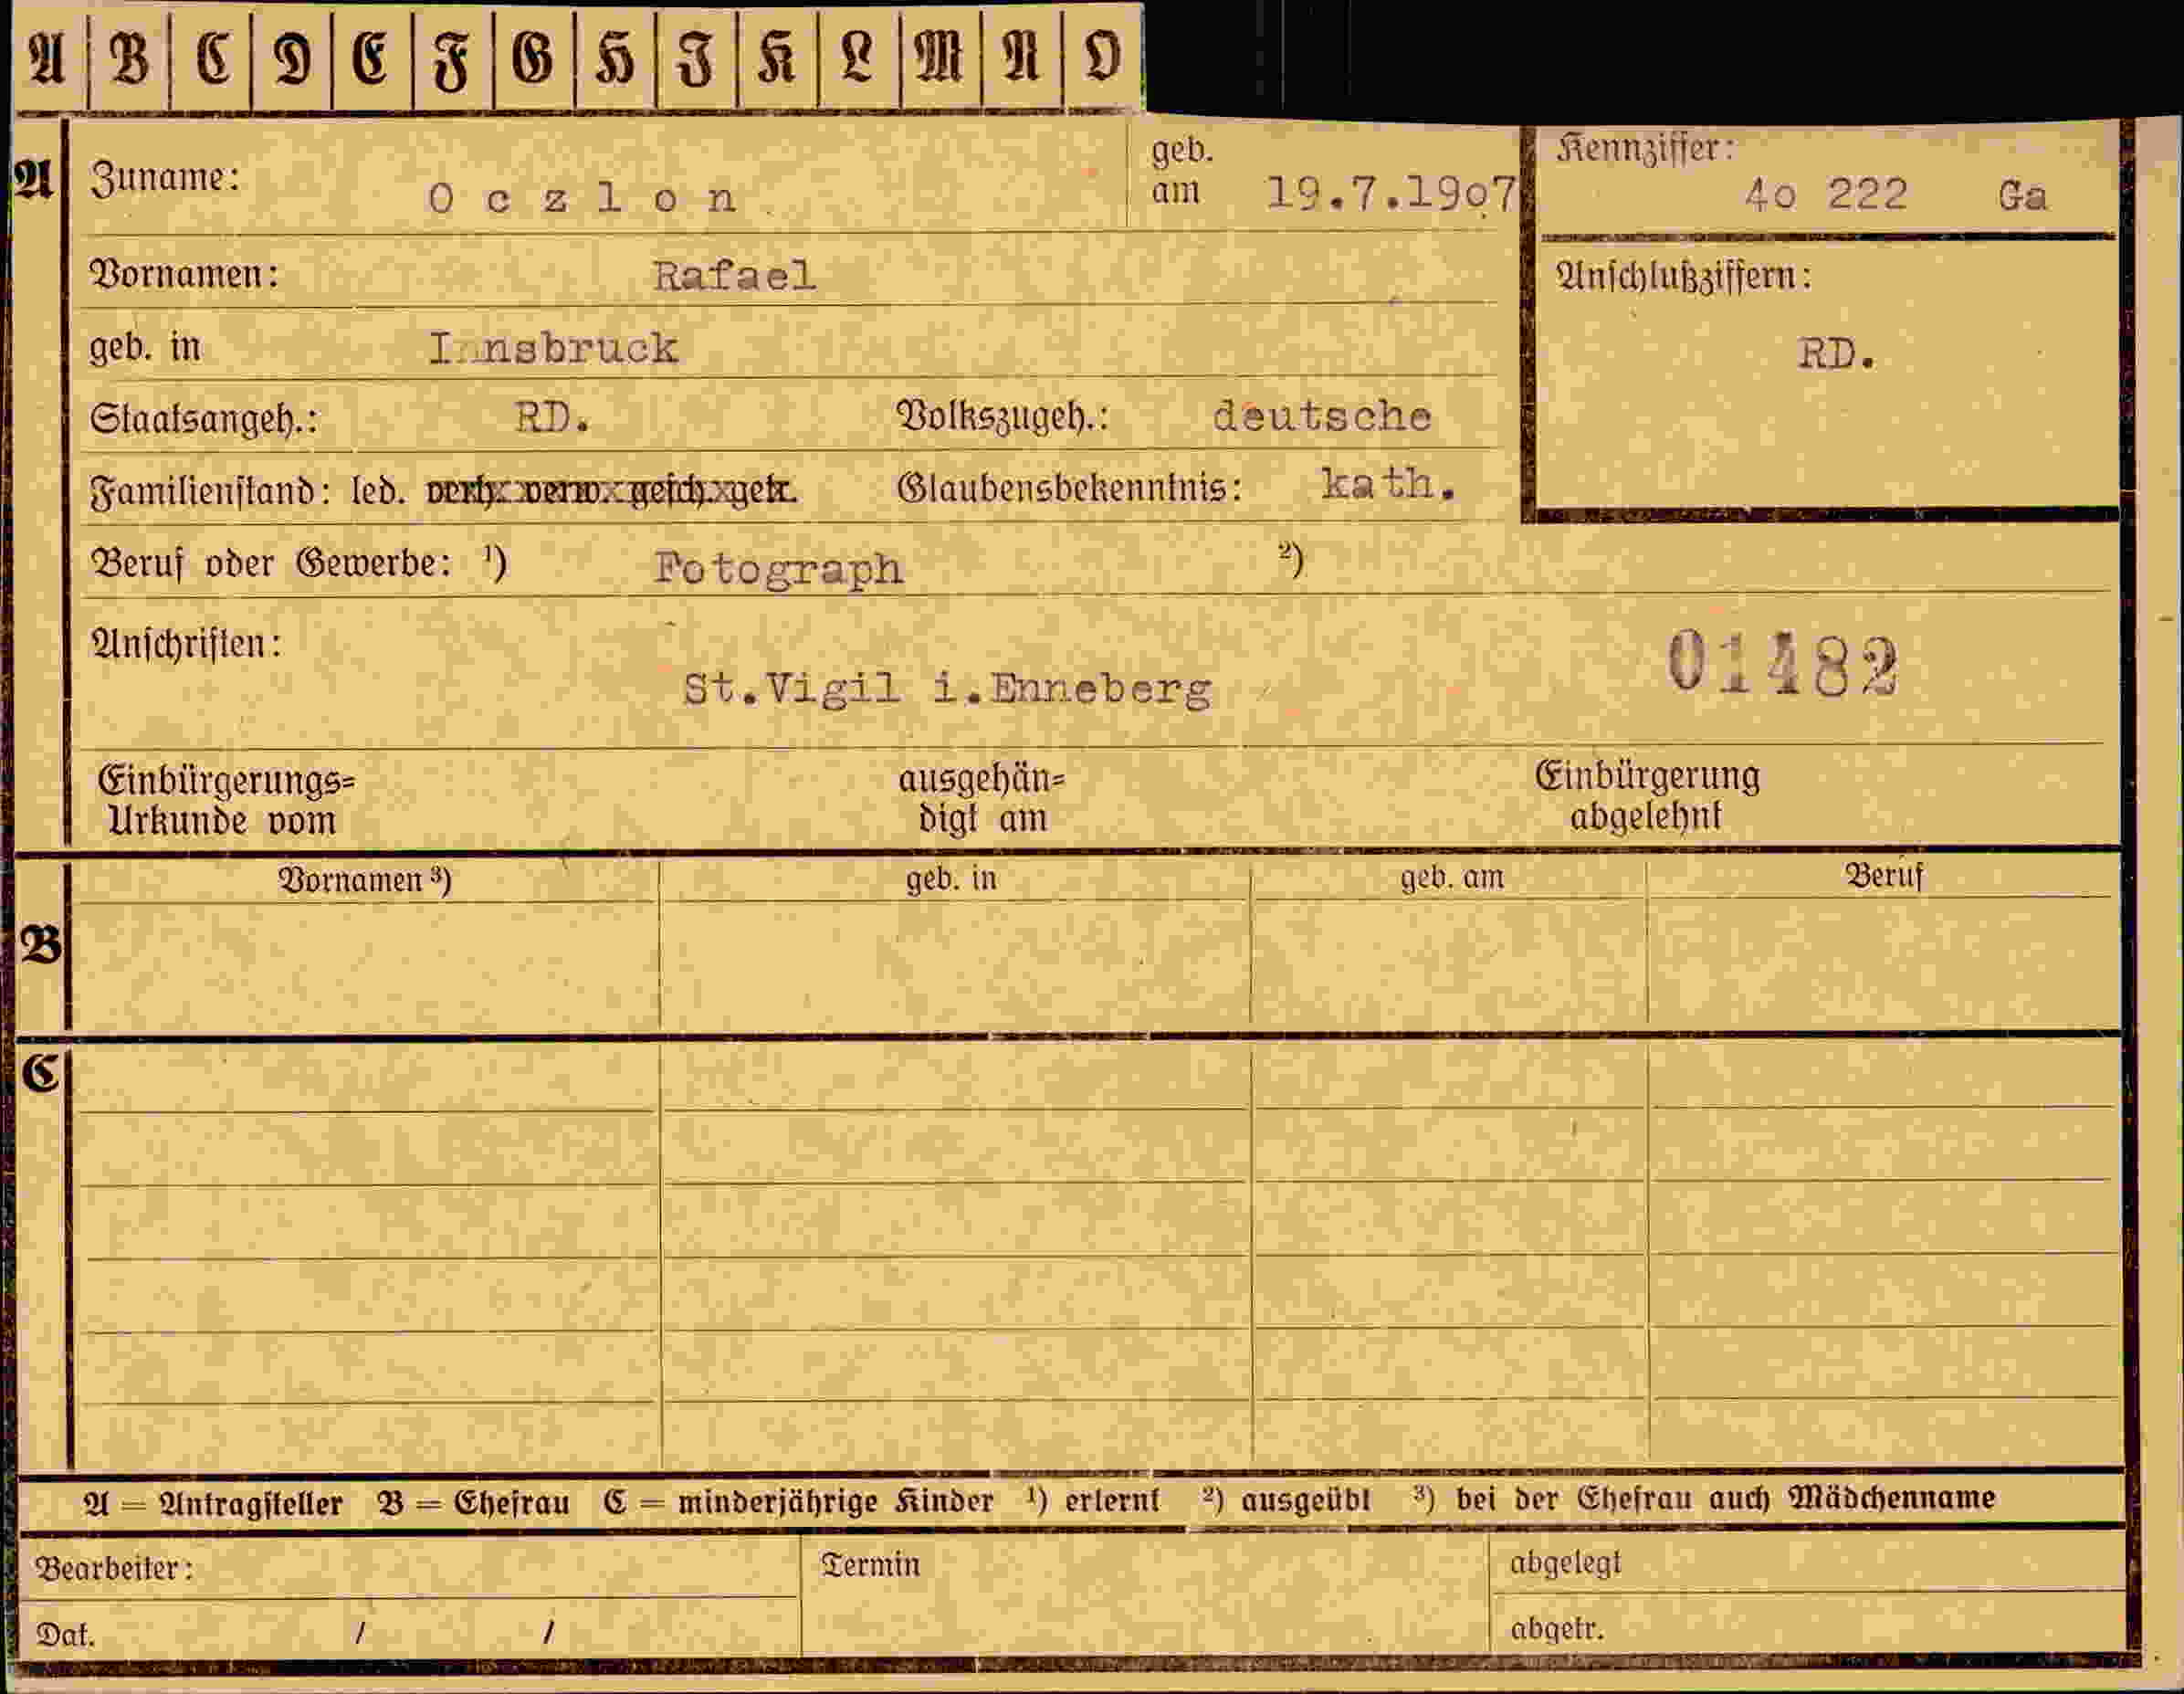 A B C D E F G H I K L M N O
A
Zuname: Oczlon geb. am 19.7.19o7
Kennziffer: 4o 222 Ga
Vornamen: Rafael
Anschlußziffern: RD.
geb. in Innsbruck
Staatsangeh.: RD. Volkszugeh.: deutsche
Familienstand: led. verh. verw. gesch. getr. Glaubensbekenntnis: kath.
Beruf oder Gewerbe: ¹) Fotograph ²)
Anschriften: St.Vigil i.Enneberg 01482
Einbürgerungs=
Urkunde vom
ausgehän=
digt am
Einbürgerung
abgelehnt
Vornamen ³) geb. in geb. am Beruf
B
C
A = Antragsteller B = Ehefrau C = minderjährige Kinder ¹) erlernt ²) ausgeübt ³) bei der Ehefrau auch Mädchenname
Bearbeiter: Termin abgelegt
Dat. / / abgetr.